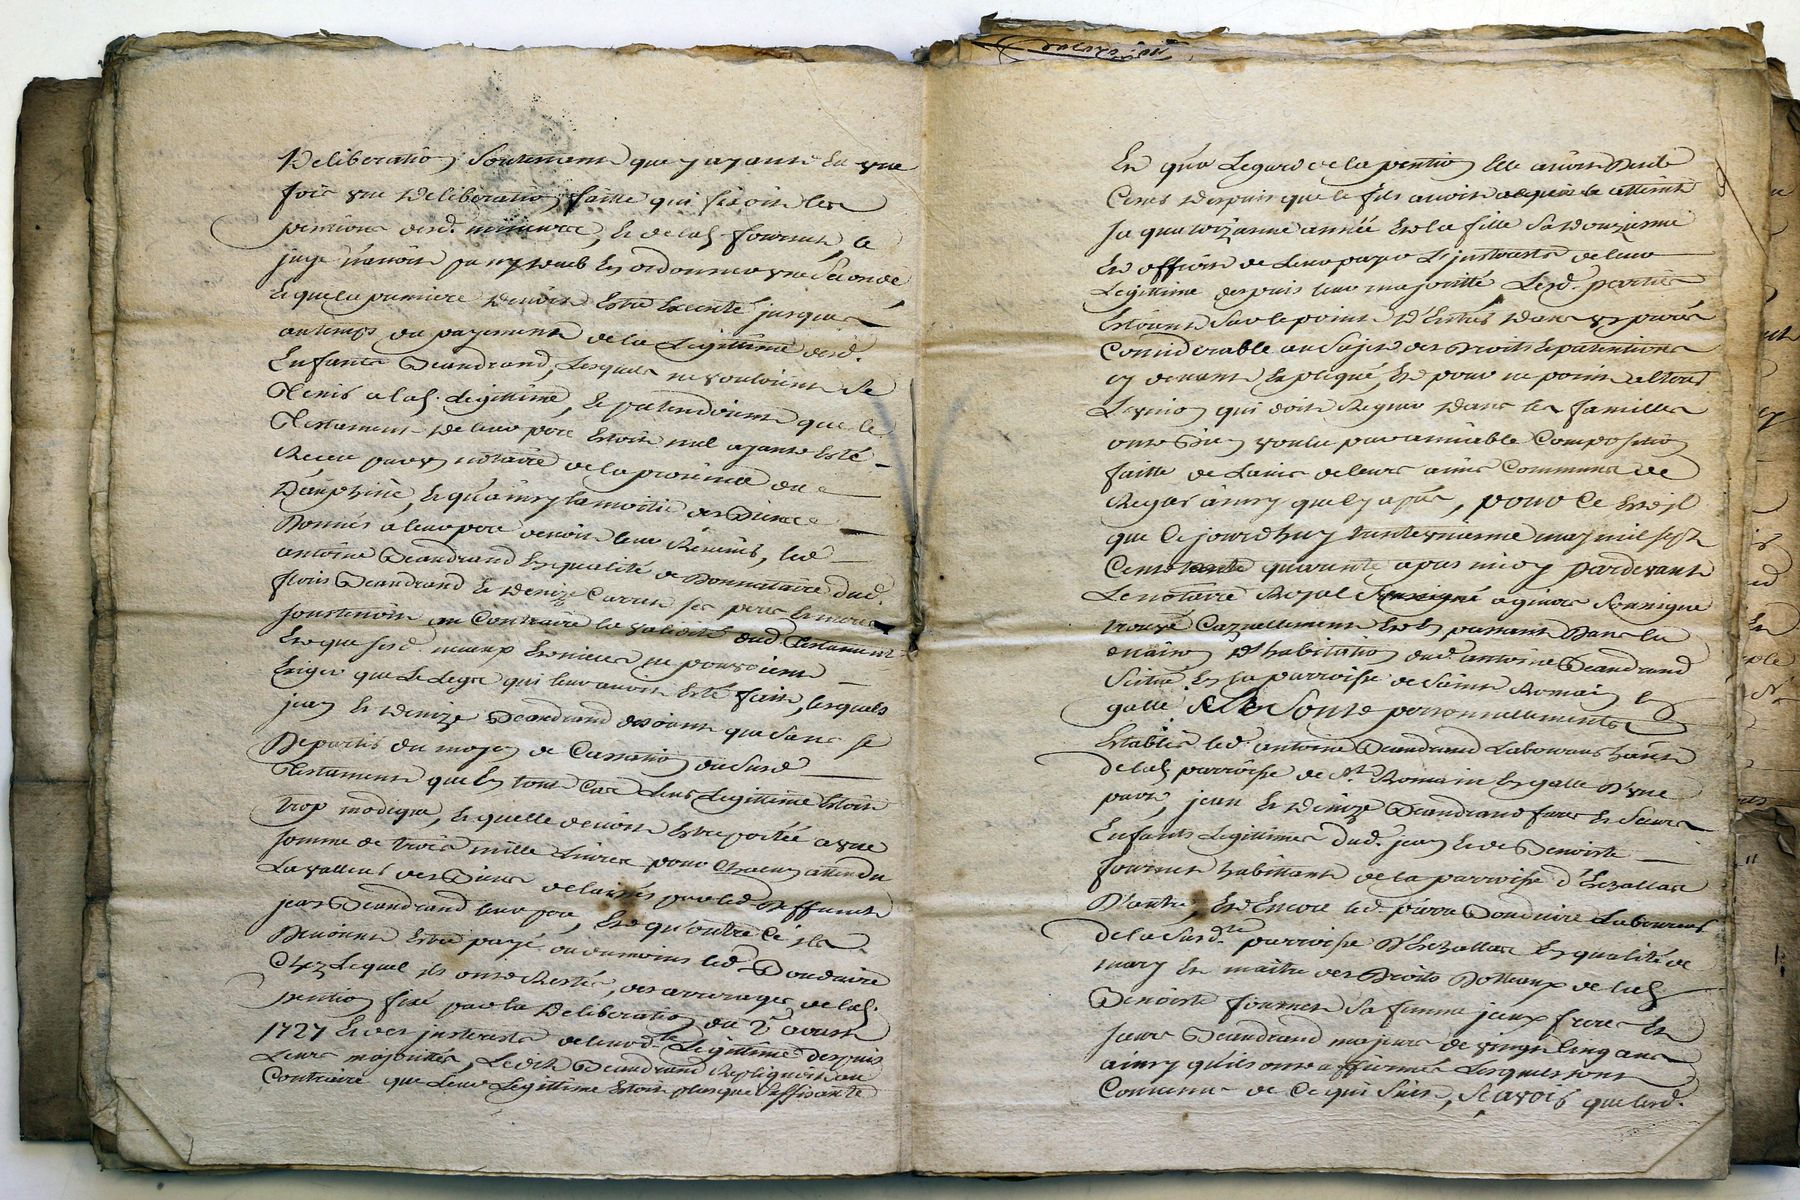 Deliberation, soutenant que y ayant eu une
fois une deliberation faitte qui fixoit les
pentions desd. mineurs, et de lad. fournet, le
juge n'avoit pu ny deub en ordonner une seconde
et que la premiere devoit estre executé jusques
au temps du payement de la Legittime desd.
Enfants Deandrand, Lesquels ne vouloient se
tenir a lad. Legittime, et pretendoient que le
Testament de leur pere estoit nul ayant esté
Receu par un notaire de la province du
Dauphiné, et qu'ainsy la moitié des Biens
Donnés à leur pere devoit leur Revenir, led.
antoine Deandrand en qualité de Donnataire dud.
floris Deandrand et Denize Carret ses pere et mere
soustenoit au Contraire la validité dud. Testament
et que sesd. neveux et nieces ne pouvoient
Exiger que Le Legs qui leur avoit esté fait, lesquels
jean et Denize Deandrand disoient que sans se
Departir du moyen de Cassation du susd.
Testament que en tout Cas leur Legittime estoit
trop modique, et quelle devoit estre portée a une
somme de trois mille Livres pour chacun attendu
La valleur des Biens delaissés par led. Deffunt
jean Deandrand leur pere, et qu'outre ce ils
Devoient estre payé ou du moins led. Douduire
Chez Lequel ils ont Resté, des arrerages de lad.
pention fixé par la Deliberation du 2e aoust
1727 et des justerests de leurd.te Legittime despuis
Leurs majorités, Ledit Deandrand Repliquoit au
Contraire que Leur Legittime estoit plus que suffisante
Et qu'a Legard de la pention Elle avoit deub
Cesser despuis que le fils avoit atteint
sa quatorzianne année et la fille sa Douzieme
et offroit de Leur payer Les justerests de leur
Legittime despuis leur majoritté Lesd. parties
Estoient sur le point d'Entrer dans un procés
Considerable au sujet des Droits et pretentions
cy devant Expliqué, et pour ne point alterer
L'union qui doit Regner dans les familles
ont Bien voulu par amiable Composition
faitte de L'avis de leurs amis Communs se
Regler ainsy que cy aprés, pour Ce est il
que Ce jourdhuy trente unieme may mil sept
Cents quarante apres midy pardevant
Le notaire Royal a givors soussigné
trouvé Cazuellement et en passant Dans la
maison d'habitation dud. antoine Deandrand
scitué en sa parroisse de saint Romain en
galle se sont personnellement
Establis led. antoine Deandrand Laboureur habitant
de lad. parroisse de St. Romain en galle D'une
part, jean et Denize Deandrand frere et sœur
Enfants Legittimes dud. jean et de Benoiste
fournet habittants de la parroisse d'Echallas
D'autre, Et Encore led. pierre Douduire Laboureur
de la susd.te parroisse D'Echallas en qualité de
mary et maitre des Droits Dotteaux de lad.
Benoiste fournet sa femme jceux frere et
sœur Deandrand majeurs de vingt Cinq ans
ainsy qu'ils ont affirmés Lesquels sont
Convenus de Ce qui suit, sçavoir que lesd.